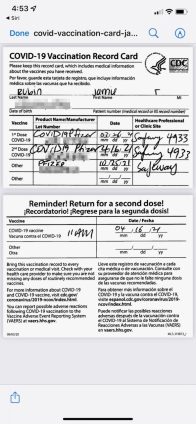 4:53
Siri
Done covid-vaccination-card-ja...
COVID-19 Vaccination Record Card
Please keep this record card, which includes medical information
about the vaccines you have received.
Por favor, guarde esta tarjeta de registro, que incluye información
médica sobre las vacunas que ha recibido.
CDC
Last Name First Name MI
Date of birth Patient number (medical record or IIS record number)
Vaccine Product Name/Manufacturer Date Healthcare Professional
Lot Number or Clinic Site
1st Dose
COVID-19 Pfizer Safeway 4933
mm dd yy
2nd Dose COVID19 Pfizer Safeway 4933
COVID-19
mm dd yy
Other PFIZER Safeway
mm dd yy
Other
mm dd yy
Reminder! Return for a second dose!
¡Recordatorio! ¡Regrese para la segunda dosis!
Vaccine Date / Fecha
COVID-19 vaccine 11AM 04 16 21
Vacuna contra el COVID-19 mm dd yy
Other
Otra mm dd yy
Bring this vaccination record to every
vaccination or medical visit. Check with your
health care provider to make sure you are not
missing any doses of routinely recommended
vaccines.
For more information about COVID-19
and COVID-19 vaccine, visit cdc.gov/
coronavirus/2019-ncov/index.html.
You can report possible adverse reactions
following COVID-19 vaccination to the
Vaccine Adverse Event Reporting System
(VAERS) at vaers.hhs.gov.
Lleve este registro de vacunación a cada
cita médica o de vacunación. Consulte con
su proveedor de atención médica para
asegurarse de que no le falte ninguna dosis
de las vacunas recomendadas.
Para obtener más información sobre el
COVID-19 y la vacuna contra el COVID-19,
visite espanol.cdc.gov/coronavirus/2019-
ncov/index.html.
Puede notificar las posibles reacciones
adversas después de la vacunación contra
el COVID-19 al Sistema de Notificación de
Reacciones Adversas a las Vacunas (VAERS)
en vaers.hhs.gov.